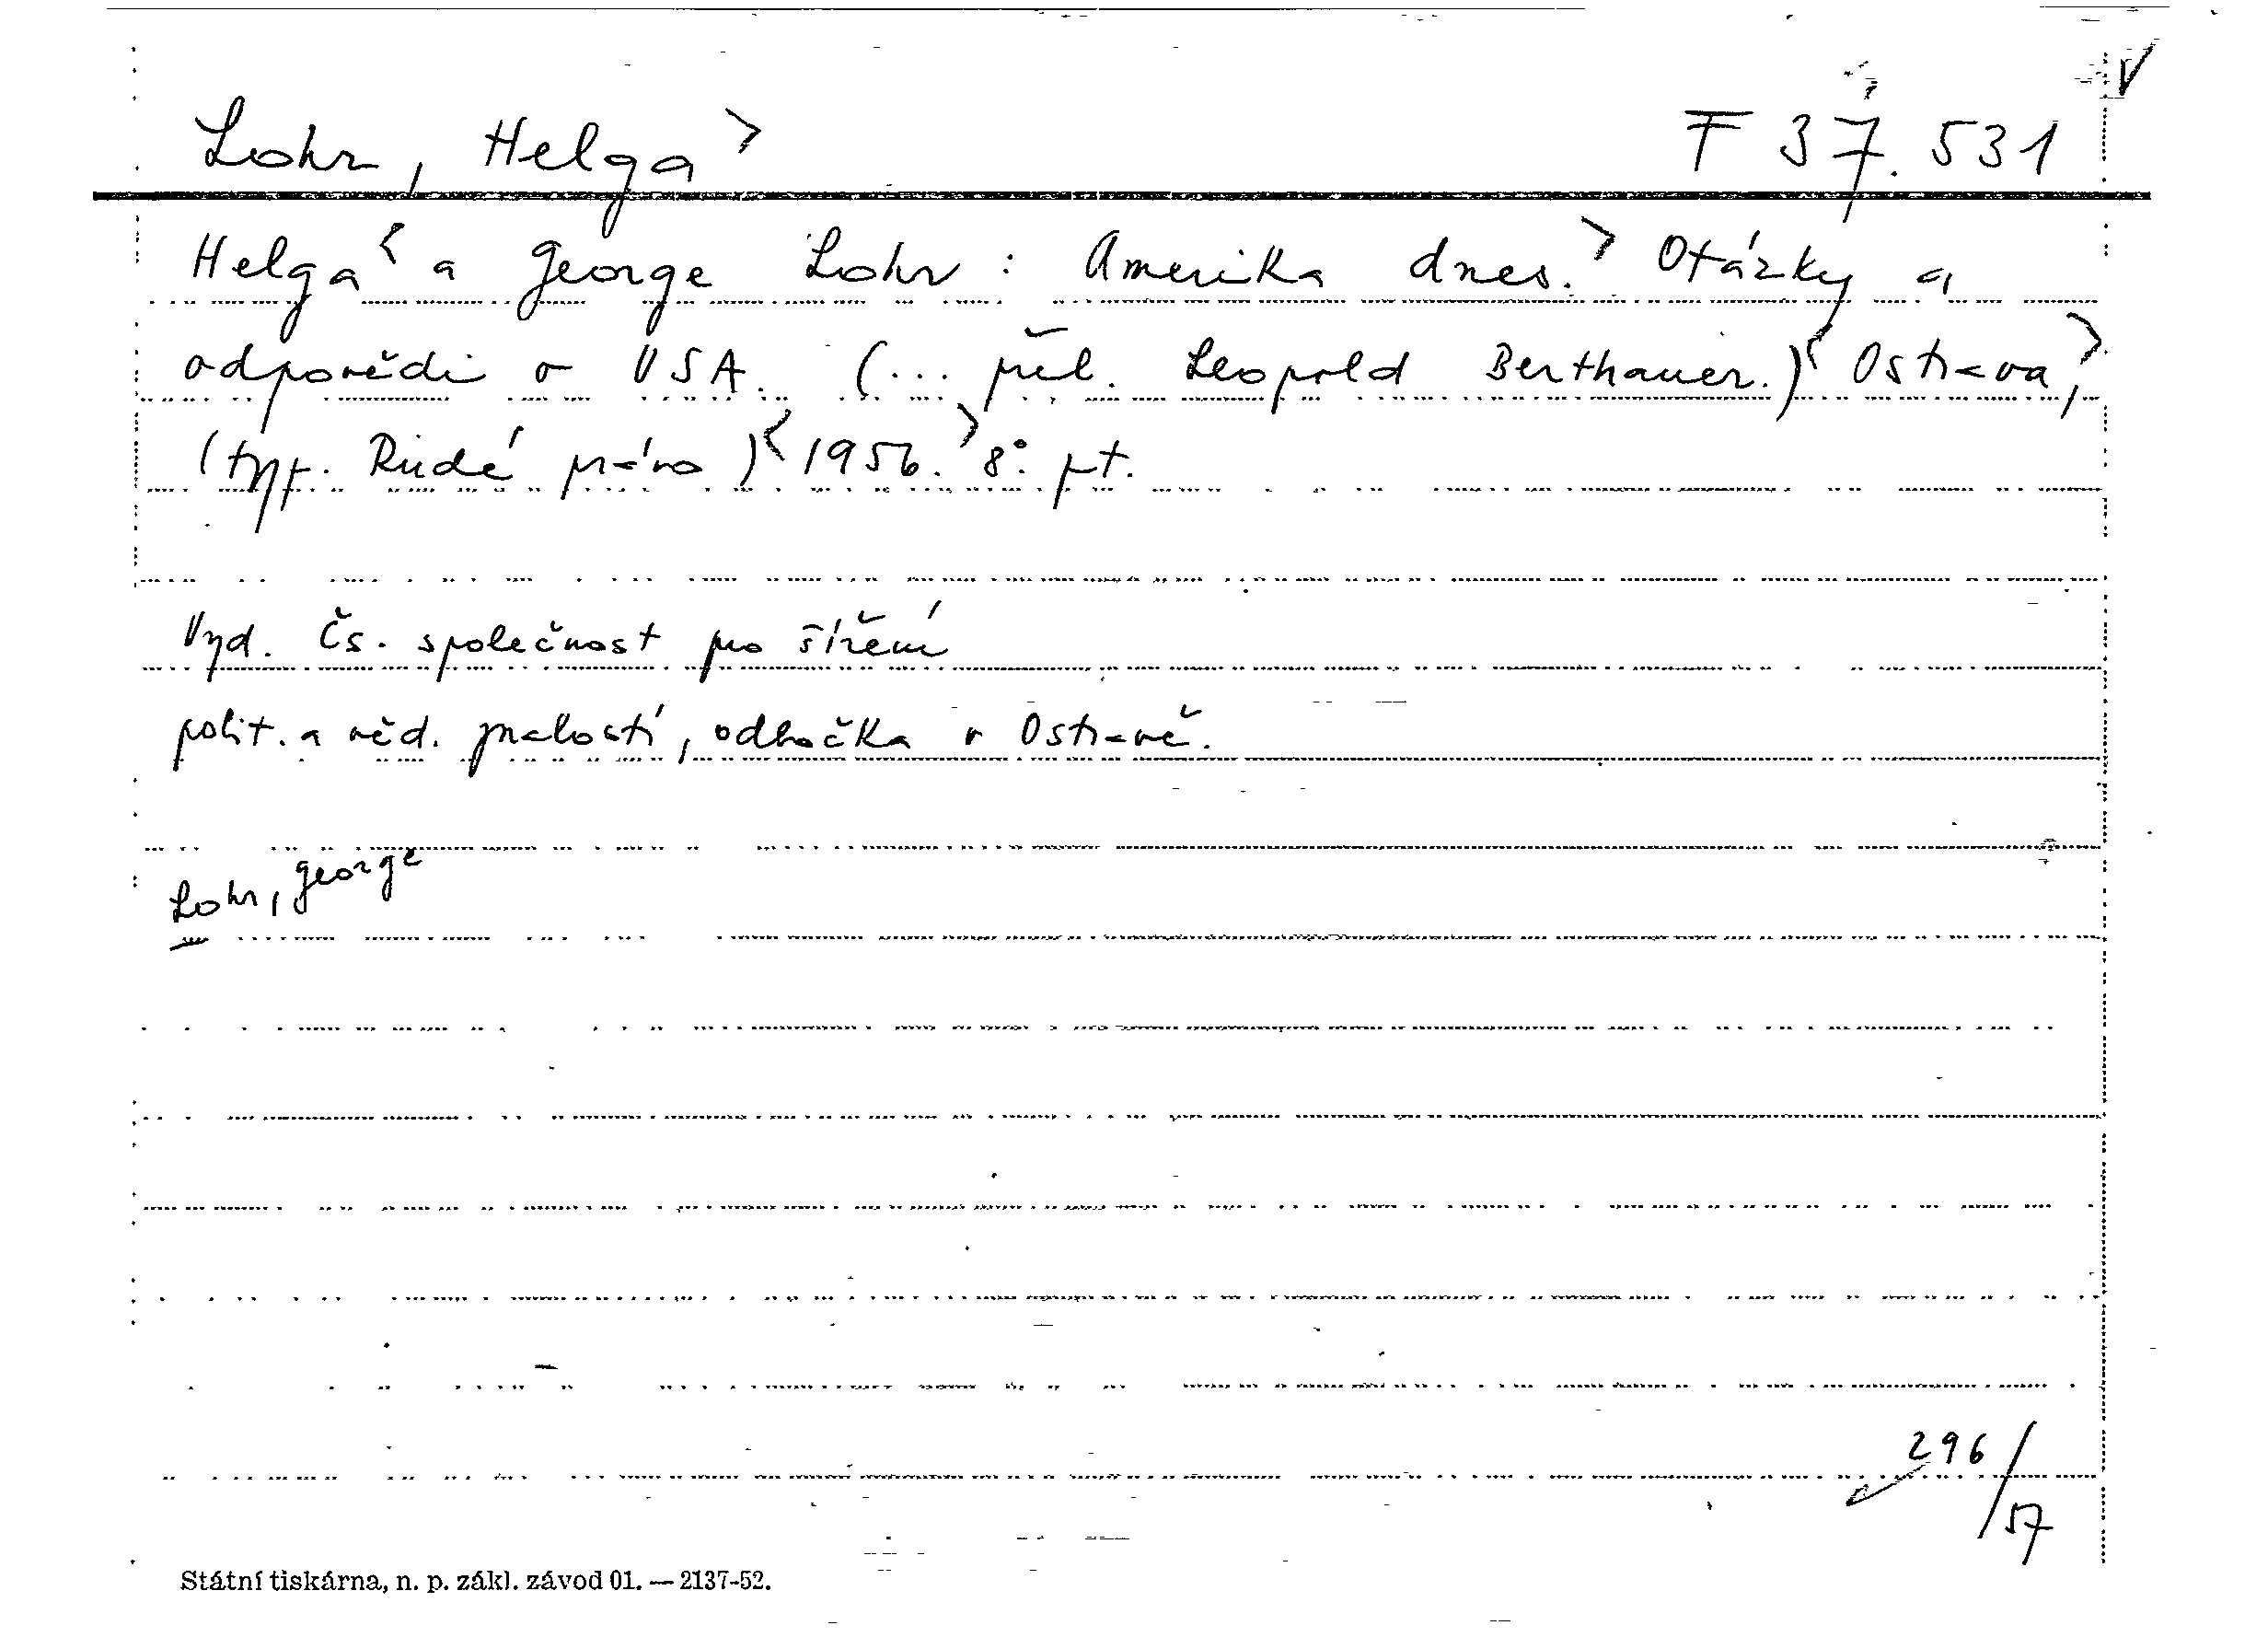 V
Lohr, Helga > F 37.531
Helga < a George Lohr : Amerika dnes. > Otázky a
odpovědi o USA. (... přel. Leopold Berthauer.) < Ostrava, >
(typ. Rudé právo) < 1956. > 8°. pt.
Vyd. Čs. společnost pro šíření
polit. a věd. znalostí, odbočka v Ostravě.
Lohr, George
296/57
Státní tiskárna, n. p. zákl. závod 01. — 2137-52.